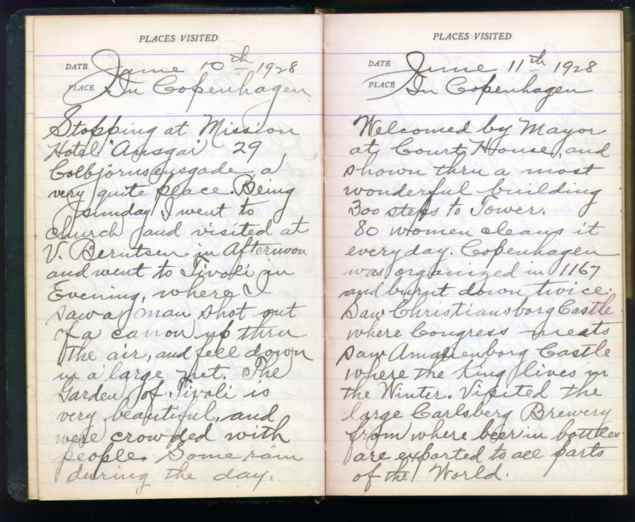 PLACES VISITED
DATE June 10th 1928
PLACE In Copenhagen
Stopping at Mission
Hotel "Ansgar" 29
Colbjornsensgade, a
very quite place. Being
Sunday I went to
church and visited at
V. Berntsen in Afternoon
and went to Tivoli in
Evening, where I
saw a man shot out
of a canon up thru
the air, and fell down
in a large net. The
Garden of Tivoli is
very beautiful, and
were crowded with
people. Some rain
during the day.
PLACES VISITED
DATE June 11th 1928
PLACE In Copenhagen
Welcomed by Mayor
at Court House, and
shown thru a most
wonderful building
300 steps to Tower.
80 women cleans it
everyday. Copenhagen
was organized in 1167
and burnt down twice.
Saw Christiansborg Castle
where Congress meets
Saw Amalienborg Castle
where the King lives in
the Winter. Visited the
large Carlsberg Brewery
from where beer in bottles
are exported to all parts
of the World.